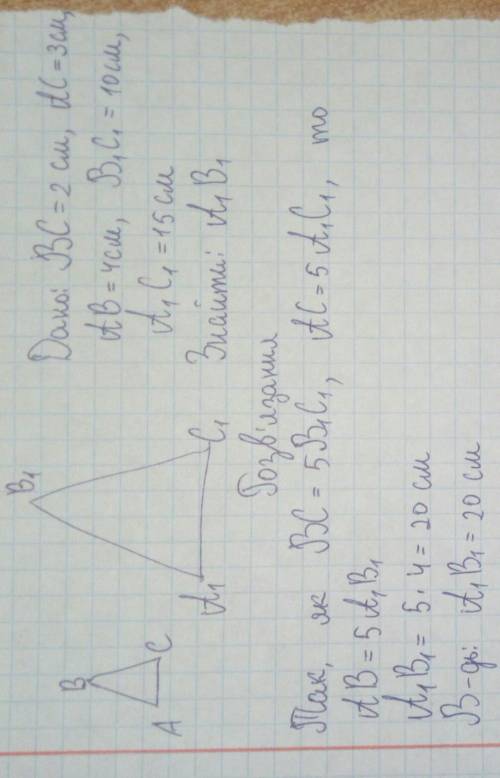 Дано: BC = 2 см, AC = 3 см,
AB = 4 см, B₁C₁ = 10 см,
A₁C₁ = 15 см
Знайти: A₁B₁
B
A
C
B₁
A₁
C₁
Розв'язання
Так, як BC = 5B₁C₁, AC = 5A₁C₁, то
AB = 5A₁B₁
A₁B₁ = 5·4 = 20 см
В-дь: A₁B₁ = 20 см